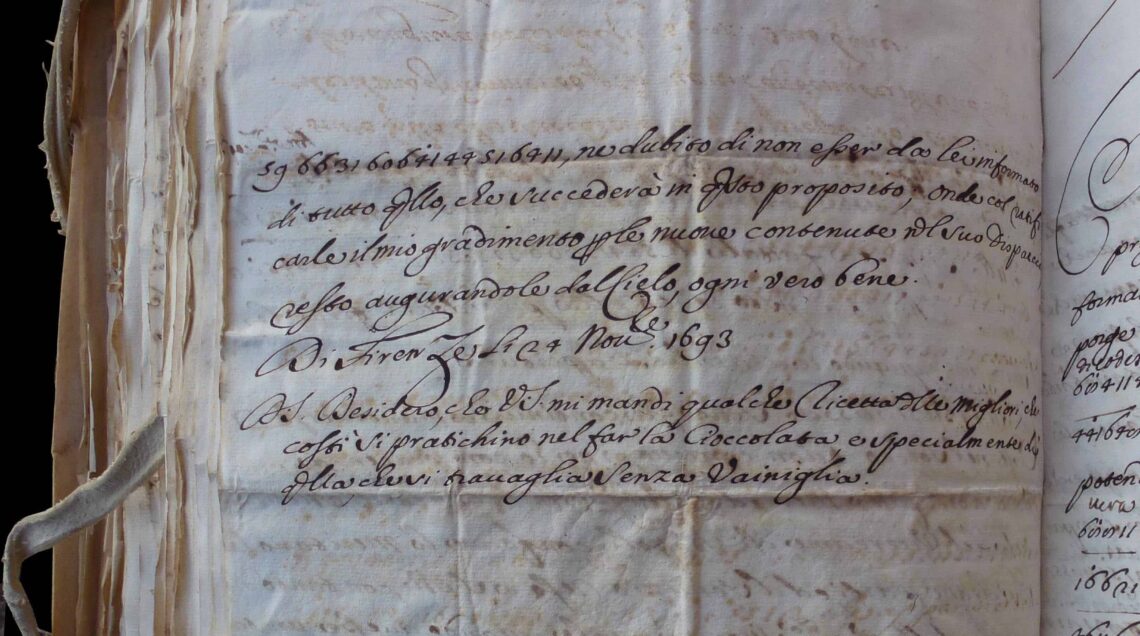 59 66316064144516411, ne dubito di non esser da lei informato
di tutto qllo, che succederà in qsto proposito, onde col ratifi
carle il mio gradimento p le nuove contenute nel suo dispaccio
resto augurandole dal Cielo, ogni vero bene.
Di Firenze li 24 Novre 1693
P.S. Desidero, che V.S. mi mandi qualche ricetta dlle migliori, che
costì si pratichino nel far la Cioccolata e specialmente di
qlla, che si travaglia senza Vainiglia.
forma
porge
poten
vera
16621